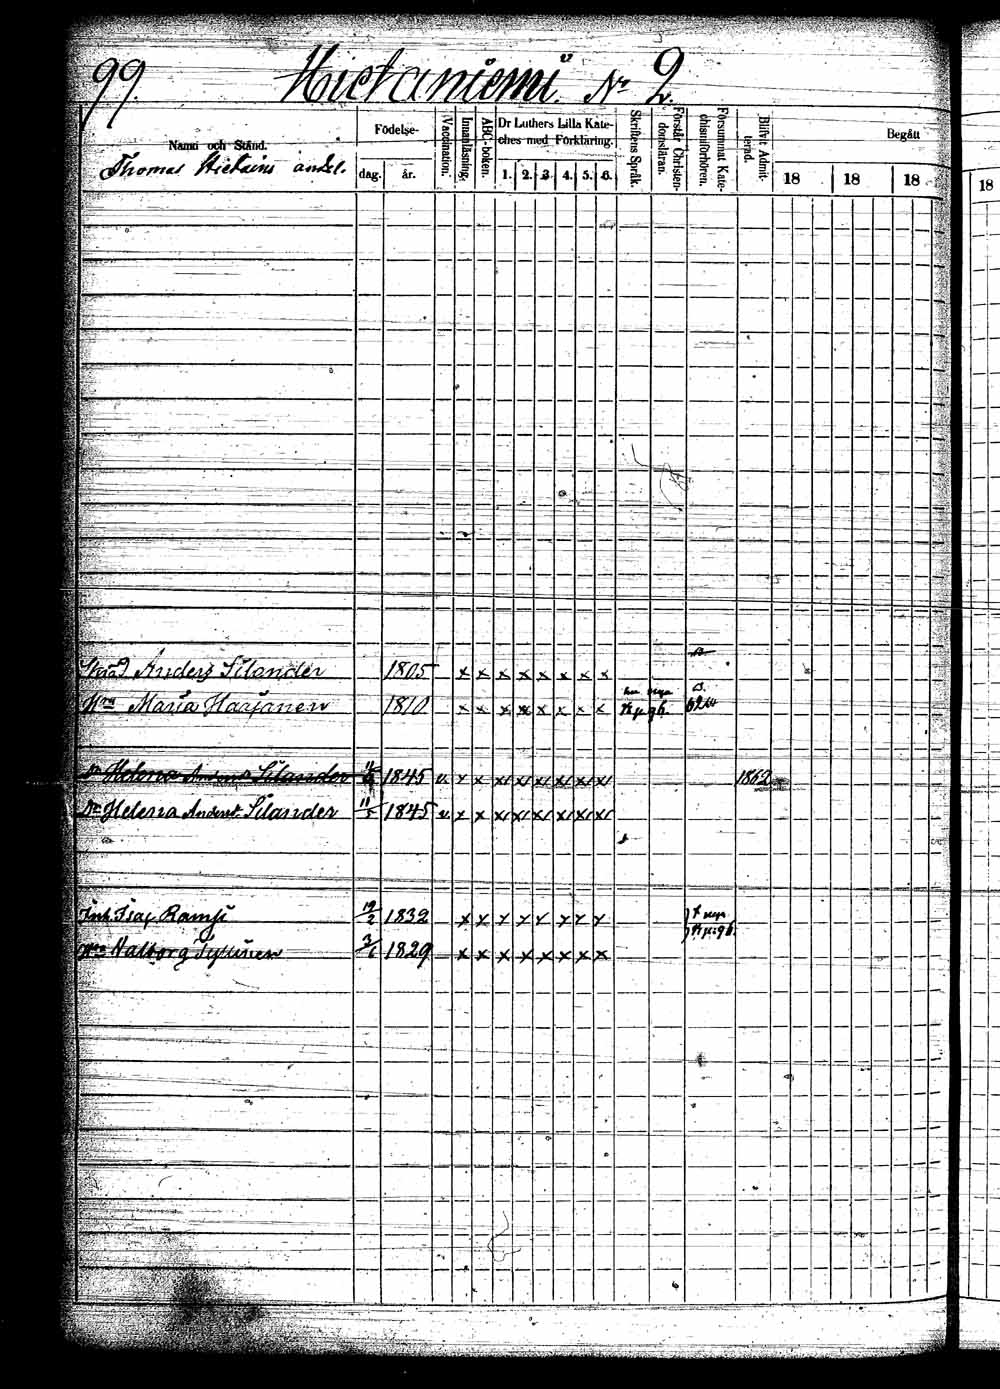 99.
Hietaniemi. No 2.
Namn och Stånd.
Thomas Hietains andel.
Födelse-
dag. år.
Vaccination.
Innanläsning.
ABC-boken.
Dr Luthers Lilla Kate-
ches med Förklaring.
1. 2. 3. 4. 5. 6.
Skriftens Språk.
Förstår Christen-
domsläran.
Försummat Kate-
chismiförhören.
Blifvit Admit-
terad.
Begått
18 18 18 18
Anders Silander 1805 x x x x x x x x
Maria Haajanen 1810 x x x x x x x x
Dr Helena Silander 1845 v. x x x x x x x x 1862
Dr Helena Andersd. Silander 11/5 1845 v. x x x x x x x x
Inh. Isac Ramsi 19/2 1832 x x x x x x x x
Valborg 1829 x x x x x x x x